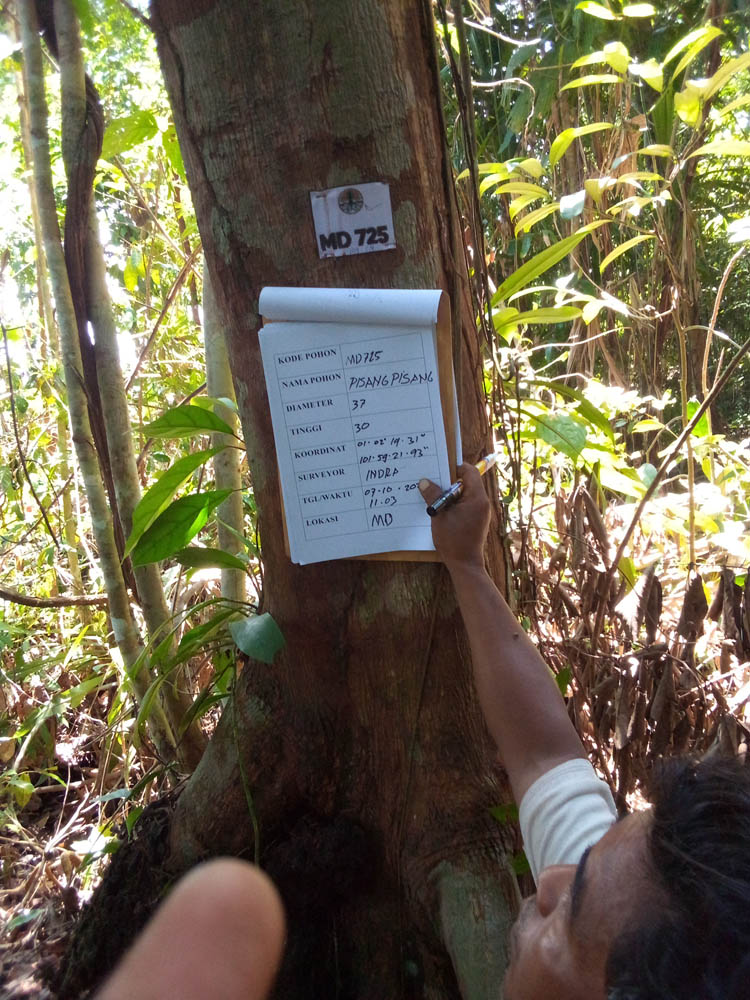 MD 725
KODE POHON MD725
NAMA POHON PISANG PISANG
DIAMETER 37
TINGGI 30
KOORDINAT 01.02' 19.31"
101.59.21.93"
SURVEYOR INDRA
TGL/WAKTU 07-10-20
11.03
LOKASI MD